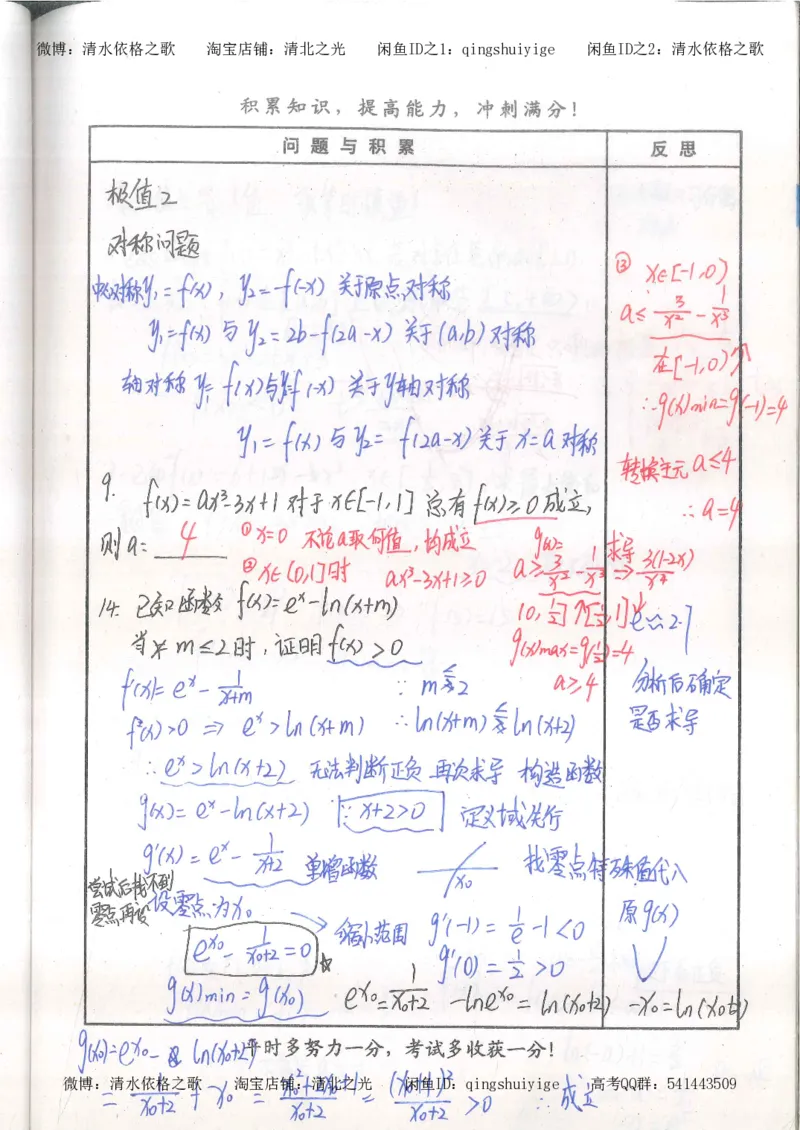 微博：清水依格之歌 淘宝店铺：清北之光 闲鱼ID之1：qingshuiyige 闲鱼ID之2：清水依格之歌
积累知识，提高能力，冲刺满分！
问题与积累 反思
极值2
对称问题
中心对称 y₁=f(x)，y₂=-f(-x) 关于原点对称
y₁=f(x) 与 y₂=2b-f(2a-x) 关于(a,b)对称
轴对称 y₁=f(x)与y₂=f(-x) 关于y轴对称
y₁=f(x) 与 y₂=f(2a-x) 关于x=a对称
③ x∈[-1,0)
a≤3/x²-1/x³
在[-1,0)↗
∴g(x)min=g(-1)=4
转换主元 a≤4
∴a=4
9. f(x)=ax³-3x+1 对于x∈[-1,1] 总有f(x)≥0成立，
则a= 4
①x=0 不论a取何值，均成立
②x∈(0,1]时 ax³-3x+1≥0
g(x)=
a≥3/x²-1/x³ 求导⇒ 3(1-2x)/x⁴
(0,1/2]↑[1/2,1]↓
g(x)max=g(1/2)=4
a≥4
14. 已知函数 f(x)=eˣ-ln(x+m)
当 m≤2时，证明f(x)>0
e≈2.7
f'(x)=eˣ-1/(x+m) ∵m≤2
分析后确定
是否求导
f(x)>0 ⇒ eˣ>ln(x+m) ∴ln(x+m)≤ln(x+2)
∴eˣ>ln(x+2) 无法判断正负 再次求导 构造函数
g(x)=eˣ-ln(x+2) ∵x+2>0 定义域先行
g'(x)=eˣ-1/(x+2) 单增函数 x₀ 找零点特殊值代入
尝试后找不到
零点再设
设零点为x₀
原g(x)
e^x₀-1/(x₀+2)=0 ☆
→缩小范围 g'(-1)=1/e-1<0
g'(0)=1/2>0
g(x)min=g(x₀) e^x₀=1/(x₀+2) -lne^x₀=ln(x₀+2) -x₀=ln(x₀+2)
g(x₀)=e^x₀-ln(x₀+2)
平时多努力一分，考试多收获一分！
=1/(x₀+2)+x₀=(x₀²+2x₀+1)/(x₀+2)=(x₀+1)²/(x₀+2)>0 ∴成立
微博：清水依格之歌 淘宝店铺：清北之光 闲鱼ID：qingshuiyige 高考QQ群：541443509